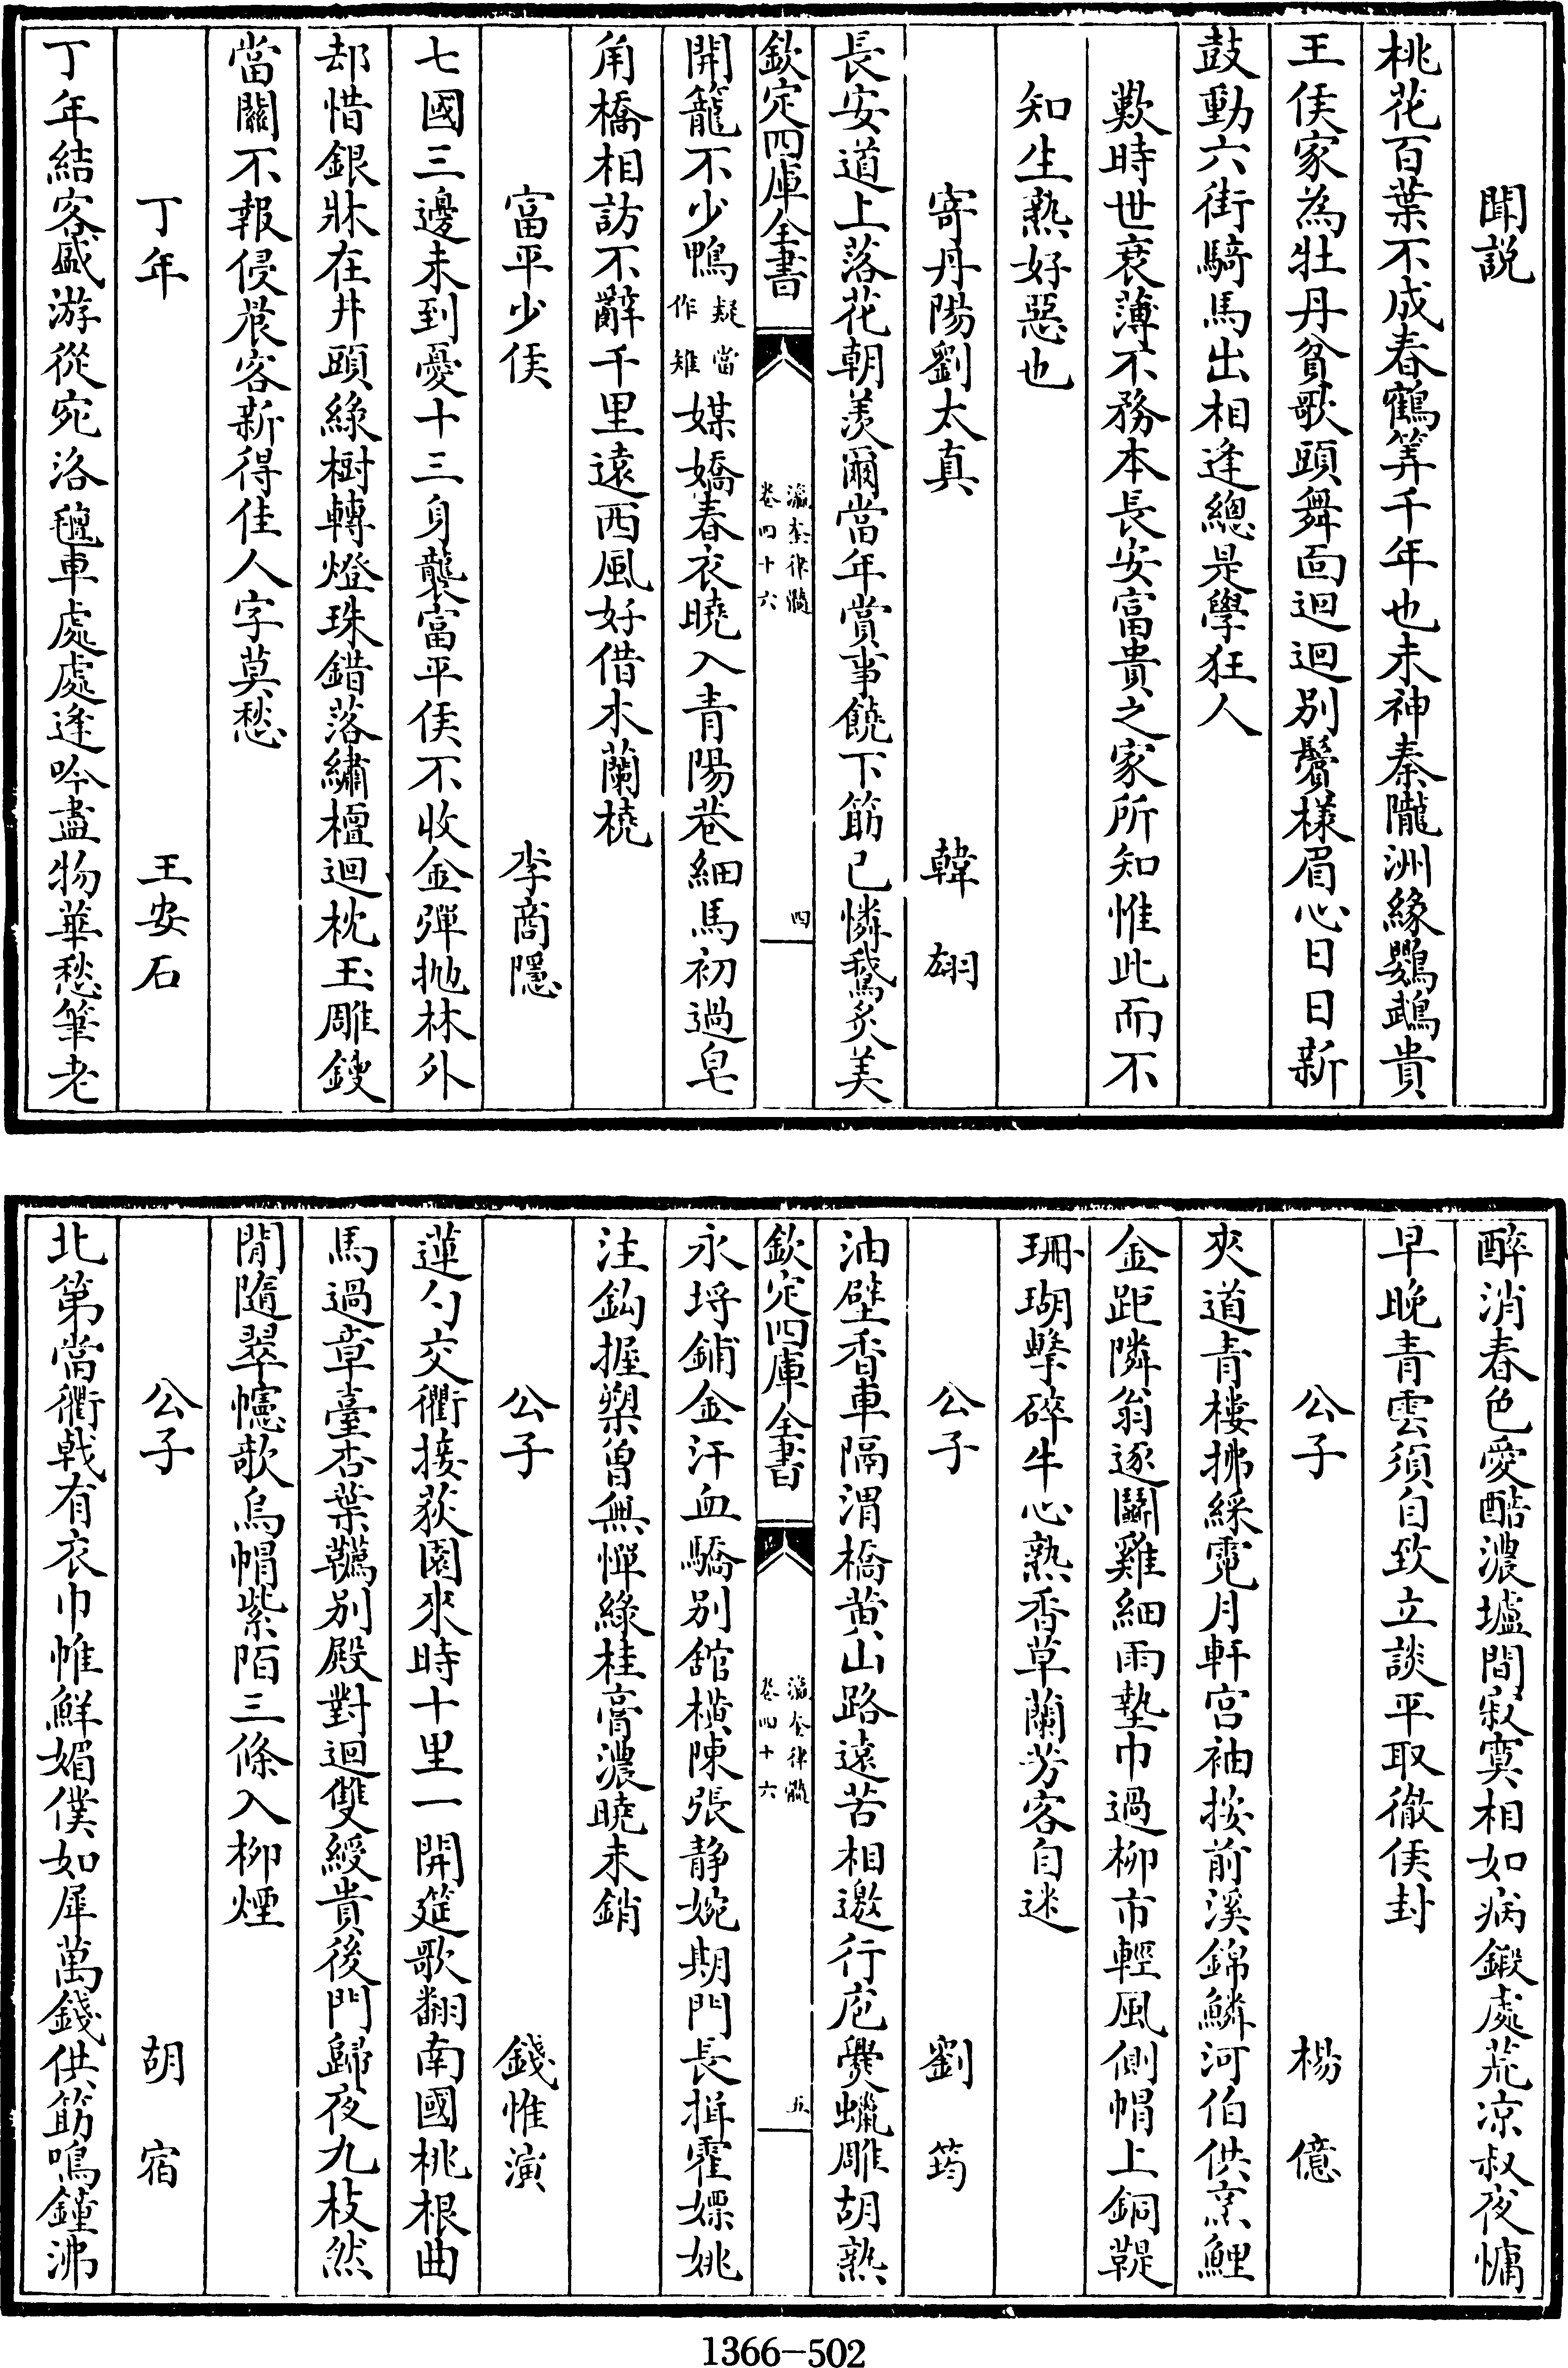 聞説
桃花百葉不成春鶴筭千年也未神秦隴洲緣鸚鵡貴
王侯家為牡丹貧歌頭舞面迴迴别鬢様眉心日日新
鼓動六街騎馬出相逢總是學狂人
歎時世衰薄不務本長安富貴之家所知惟此而不
知生熟好惡也
寄丹陽劉太真　韓翃
長安道上落花朝羨爾當年賞事饒下筯已憐鵞炙美
欽定四庫全書　瀛奎律髓卷四十六　四
開籠不少鴨疑當作雉媒嬌春衣曉入青陽巷細馬初過皂
角橋相訪不辭千里遠西風好借木蘭橈
富平少侯　李商隱
七國三邊未到憂十三身襲富平侯不收金彈抛林外
却惜銀牀在井頭綵樹轉燈珠錯落繡檀迴枕玉雕鎪
當關不報侵晨客新得佳人字莫愁
丁年　王安石
丁年結客盛游從宛洛氊車處處逢吟盡物華愁筆老
醉消春色愛醅濃壚間寂寞相如病鍛處荒凉叔夜慵
早晚青雲須自致立談平取徹侯封
公子　楊億
夾道青樓拂綵霓月軒宫袖按前溪錦鱗河伯供烹鯉
金距隣翁逐鬭雞細雨墊巾過柳市輕風側帽上銅鞮
珊瑚擊碎牛心熟香草蘭芳客自迷
公子　劉筠
油壁香車隔渭橋黄山路遠苦相邀行庖爨蠟雕胡熟
欽定四庫全書　瀛奎律髓卷四十六　五
永埒鋪金汗血驕别舘横陳張静婉期門長揖霍嫖姚
注鈎握槊曾無憚綠桂膏濃曉未銷
公子　錢惟演
蓮勺交衢接荻園來時十里一開筵歌翻南國桃根曲
馬過章臺杏葉韉别殿對迴雙綬貴後門歸夜九枝然
閒隨翠幰欹烏帽紫陌三條入柳煙
公子　胡宿
北第當衢戟有衣巾帷鮮媚僕如犀萬錢供筯鳴鐘沸
1366-502